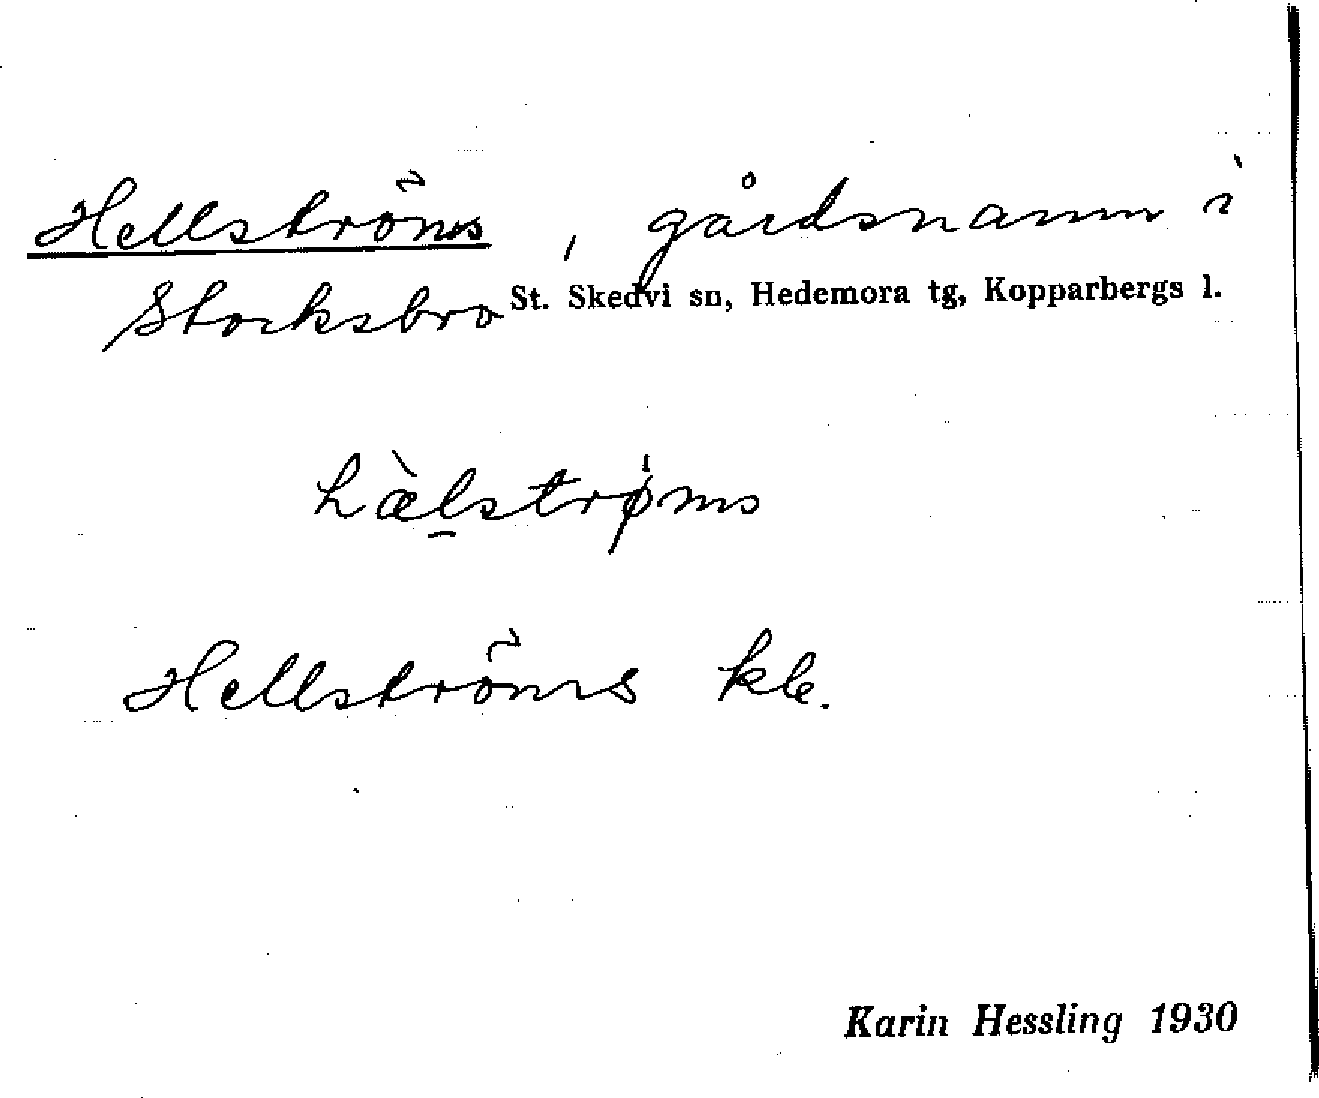 Hellströms, gårdsnamn i
Stocksbro St. Skedvi sn, Hedemora tg, Kopparbergs l.
hæ̀l̠strø̍ms
Hellströms kle.
Karin Hessling 1930